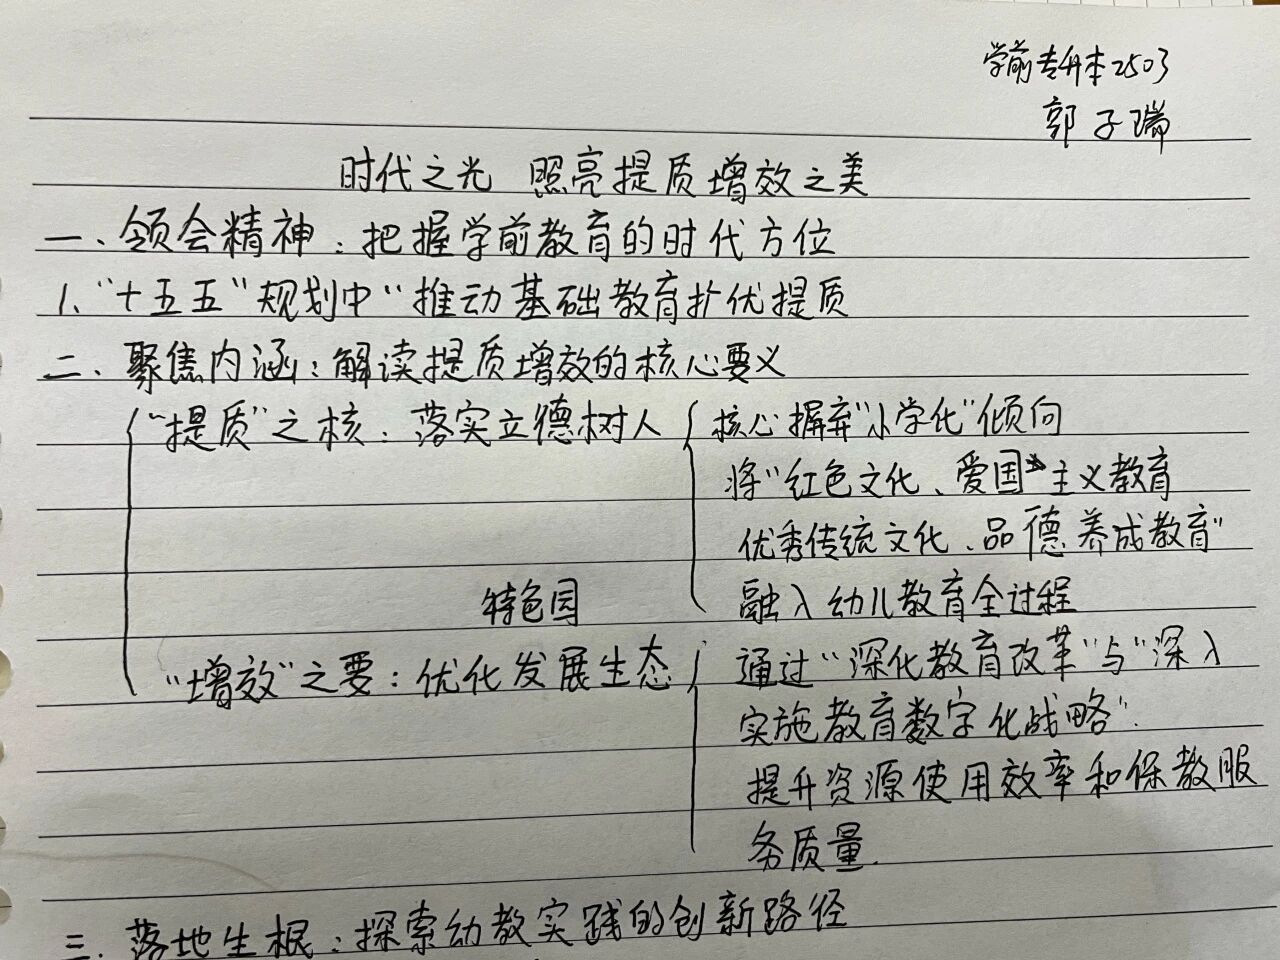 学前专升本2503
郭子瑞
时代之光 照亮提质增效之美
一、领会精神：把握学前教育的时代方位
1、“十五五”规划中“推动基础教育扩优提质
二、聚焦内涵：解读提质增效的核心要义
“提质”之核：落实立德树人
核心摒弃“小学化”倾向
将“红色文化、爱国主义教育
优秀传统文化、品德养成教育”
融入幼儿教育全过程
特色园
“增效”之要：优化发展生态
通过“深化教育改革”与“深入
实施教育数字化战略”.
提升资源使用效率和保教服
务质量.
三、落地生根：探索幼教实践的创新路径